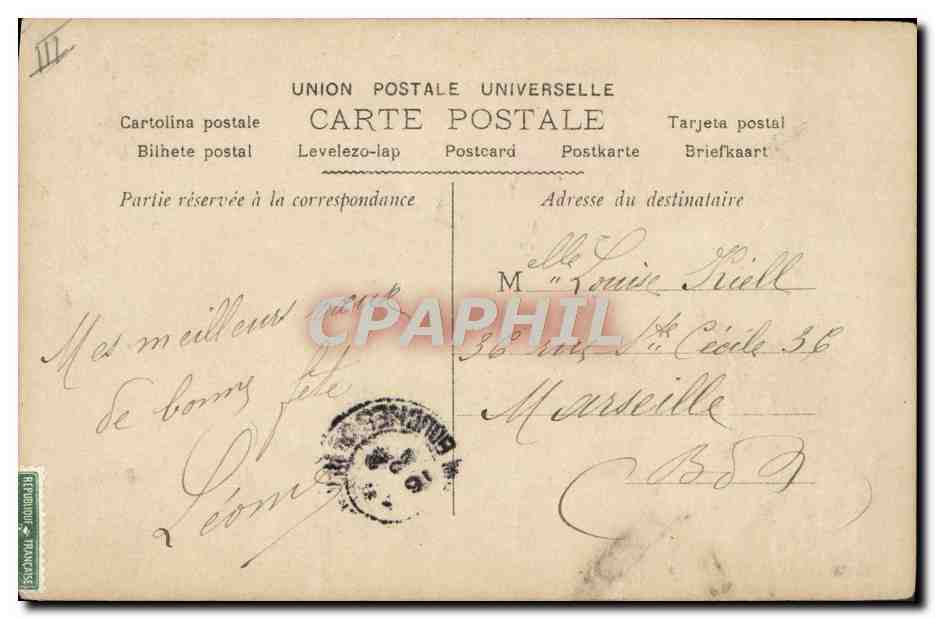 III
UNION POSTALE UNIVERSELLE
CARTE POSTALE
Cartolina postale
Tarjeta postal
Bilhete postal Levelezo-lap Postcard Postkarte Briefkaart
Partie réservée à la correspondance
Adresse du destinataire
Mes meilleurs vœux
de bonne fête
Léonie
Melle Louise Kiell
36 rue Ste Cécile 36
Marseille
BdR
CPAPHIL
BOUCHES DU
REPUBLIQUE FRANÇAISE